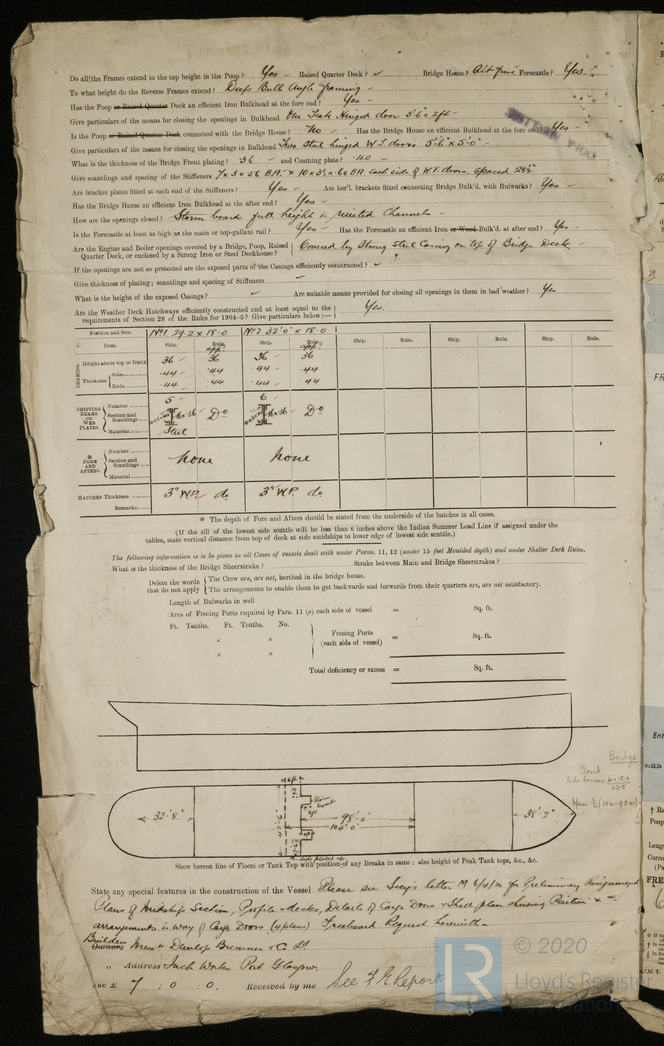 Do all the Frames extend to the top height in the Poop? Yes - Raised Quarter Deck? ✓ Bridge House? Forecastle? Yes -
To what height do the Reverse Frames extend? Deep Bulb Angle framing -
Has the Poop or Raised Quarter Deck an efficient Iron Bulkhead at the fore end? Yes -
Give particulars of the means for closing the openings in Bulkhead One Teak Hinged door 5'6 x 2ft -
Is the Poop or Raised Quarter Deck connected with the Bridge House? No - Has the Bridge House an efficient Bulkhead at the fore end? Yes -
Give particulars of the means for closing the openings in Bulkhead Two Steel hinged W.T. doors 5'-6" x 5'-0" -
What is the thickness of the Bridge Front plating? .36 - and Coaming plate? .40 -
Give scantlings and spacing of the Stiffeners 7 x 3 x .56 B.A. & 10 x 3½ x .60 BA. each side of W.T. doors, spaced
Are bracket plates fitted at each end of the Stiffeners? Yes - Are hor'l. brackets fitted connecting Bridge Bulk'd. with Bulwarks? Yes -
Has the Bridge House an efficient Iron Bulkhead at the after end? Yes -
How are the openings closed? Storm boards full height in riveted Channels -
Is the Forecastle at least as high as the main or top-gallant rail? Yes - Has the Forecastle an efficient Iron or Wood Bulk'd. at after end? Yes -
Are the Engine and Boiler openings covered by a Bridge, Poop, Raised Quarter Deck, or enclosed by a Strong Iron or Steel Deckhouse? Covered by Strong Steel Casing on top of Bridge Deck -
If the openings are not so protected are the exposed parts of the Casings efficiently constructed? ✓
Give thickness of plating; scantlings and spacing of Stiffeners
What is the height of the exposed Casings? ✓ Are suitable means provided for closing all openings in them in bad weather? Yes
Are the Weather Deck Hatchways efficiently constructed and at least equal to the
requirements of Section 28 of the Rules for 1904-5? Give particulars below:— Yes.
Position and Size. No 1 29.2 x 18.0 No 2 32'.0" x 18.0
Item. Ship. Rule. Ship. Rule. Ship. Rule. Ship. Rule. Ship. Rule.
COAMING Height above top of DECK 36 36 36 36
Thickness Sides .44 .44 .44 .44
Ends .44 .44 .44 .44
SHIFTING BEAMS OR WEB PLATES. Number 5 6
Section and Scantlings Do Do
Material Steel
* FORE AND AFTERS. Number
Section and Scantlings none none
Material
HATCHES Thickness 3" W.P. do 3" W.P. do
Remarks
* The depth of Fore and Afters should be stated from the underside of the hatches in all cases.
(If the sill of the lowest side scuttle will be less than 6 inches above the Indian Summer Load Line if assigned under the
tables, state vertical distance from top of deck at side amidships to lower edge of lowest side scuttle.)
The following information is to be given in all Cases of vessels dealt with under Paras. 11, 12 (under 15 feet Moulded depth) and under Shelter Deck Rules.
What is the thickness of the Bridge Sheerstrake? Strake between Main and Bridge Sheerstrakes?
Delete the words that do not apply The Crew are, are not, berthed in the bridge house.
The arrangements to enable them to get backwards and forwards from their quarters are, are not satisfactory.
Length of Bulwarks in well
Area of Freeing Ports required by Para. 11 (e) each side of vessel = Sq. ft.
Ft. Tenths. Ft. Tenths. No.
× ×
× ×
Freeing Ports (each side of vessel) = Sq. ft.
Total deficiency or excess = Sq. ft.
32'.8"
98'.0"
104'.0"
38'.2"
Bridge
Closed
Show hereon line of Floors or Tank Top with position of any Breaks in same; also height of Peak Tank tops, &c., &c.
State any special features in the construction of the Vessel Please see Secy's letter M 6/4/20 for Preliminary Assignment
Plans of Midship Section, Profile & decks, Details of Cargo Doors & Shell plan showing Position & -
arrangements in way of Cargo Doors (4 plans) Freeboard Request herewith -
Builders
Owners Dunlop Bremner & Co Ld
" Address Inch Works Port Glasgow.
Fee £ 7 : 0 : 0. Received by me See F.E. Report
© 2020
LR
Lloyd's Register
Foundation